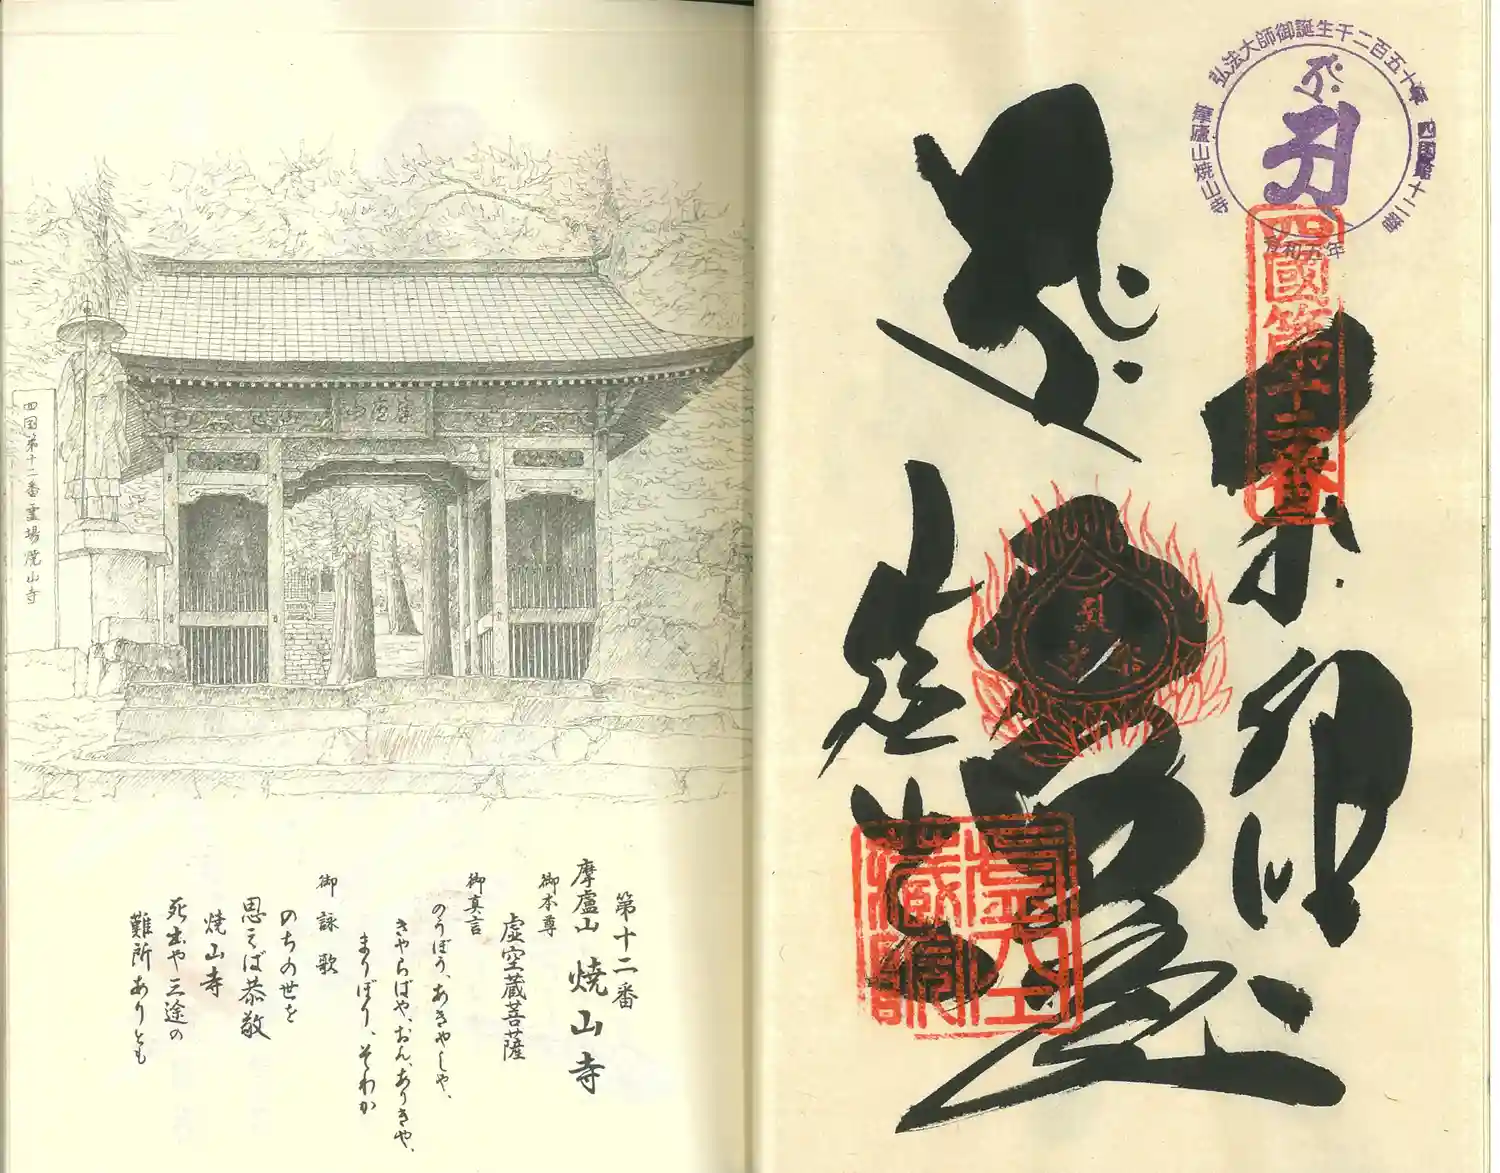 四国第十二番霊場焼山寺
第十二番
摩廬山 焼山寺
御本尊
虚空蔵菩薩
御真言
のうぼう、あきゃしゃ、
きゃらばや、おん、ありきゃ、
まりぼり、そわか
御詠歌
のちの世を
思えば恭敬
焼山寺
死出や三途の
難所ありとも
弘法大師御誕生千二百五十年
四国第十二番
摩廬山焼山寺
令和五年
四國第十二番
奉納
焼山寺
虚空蔵院